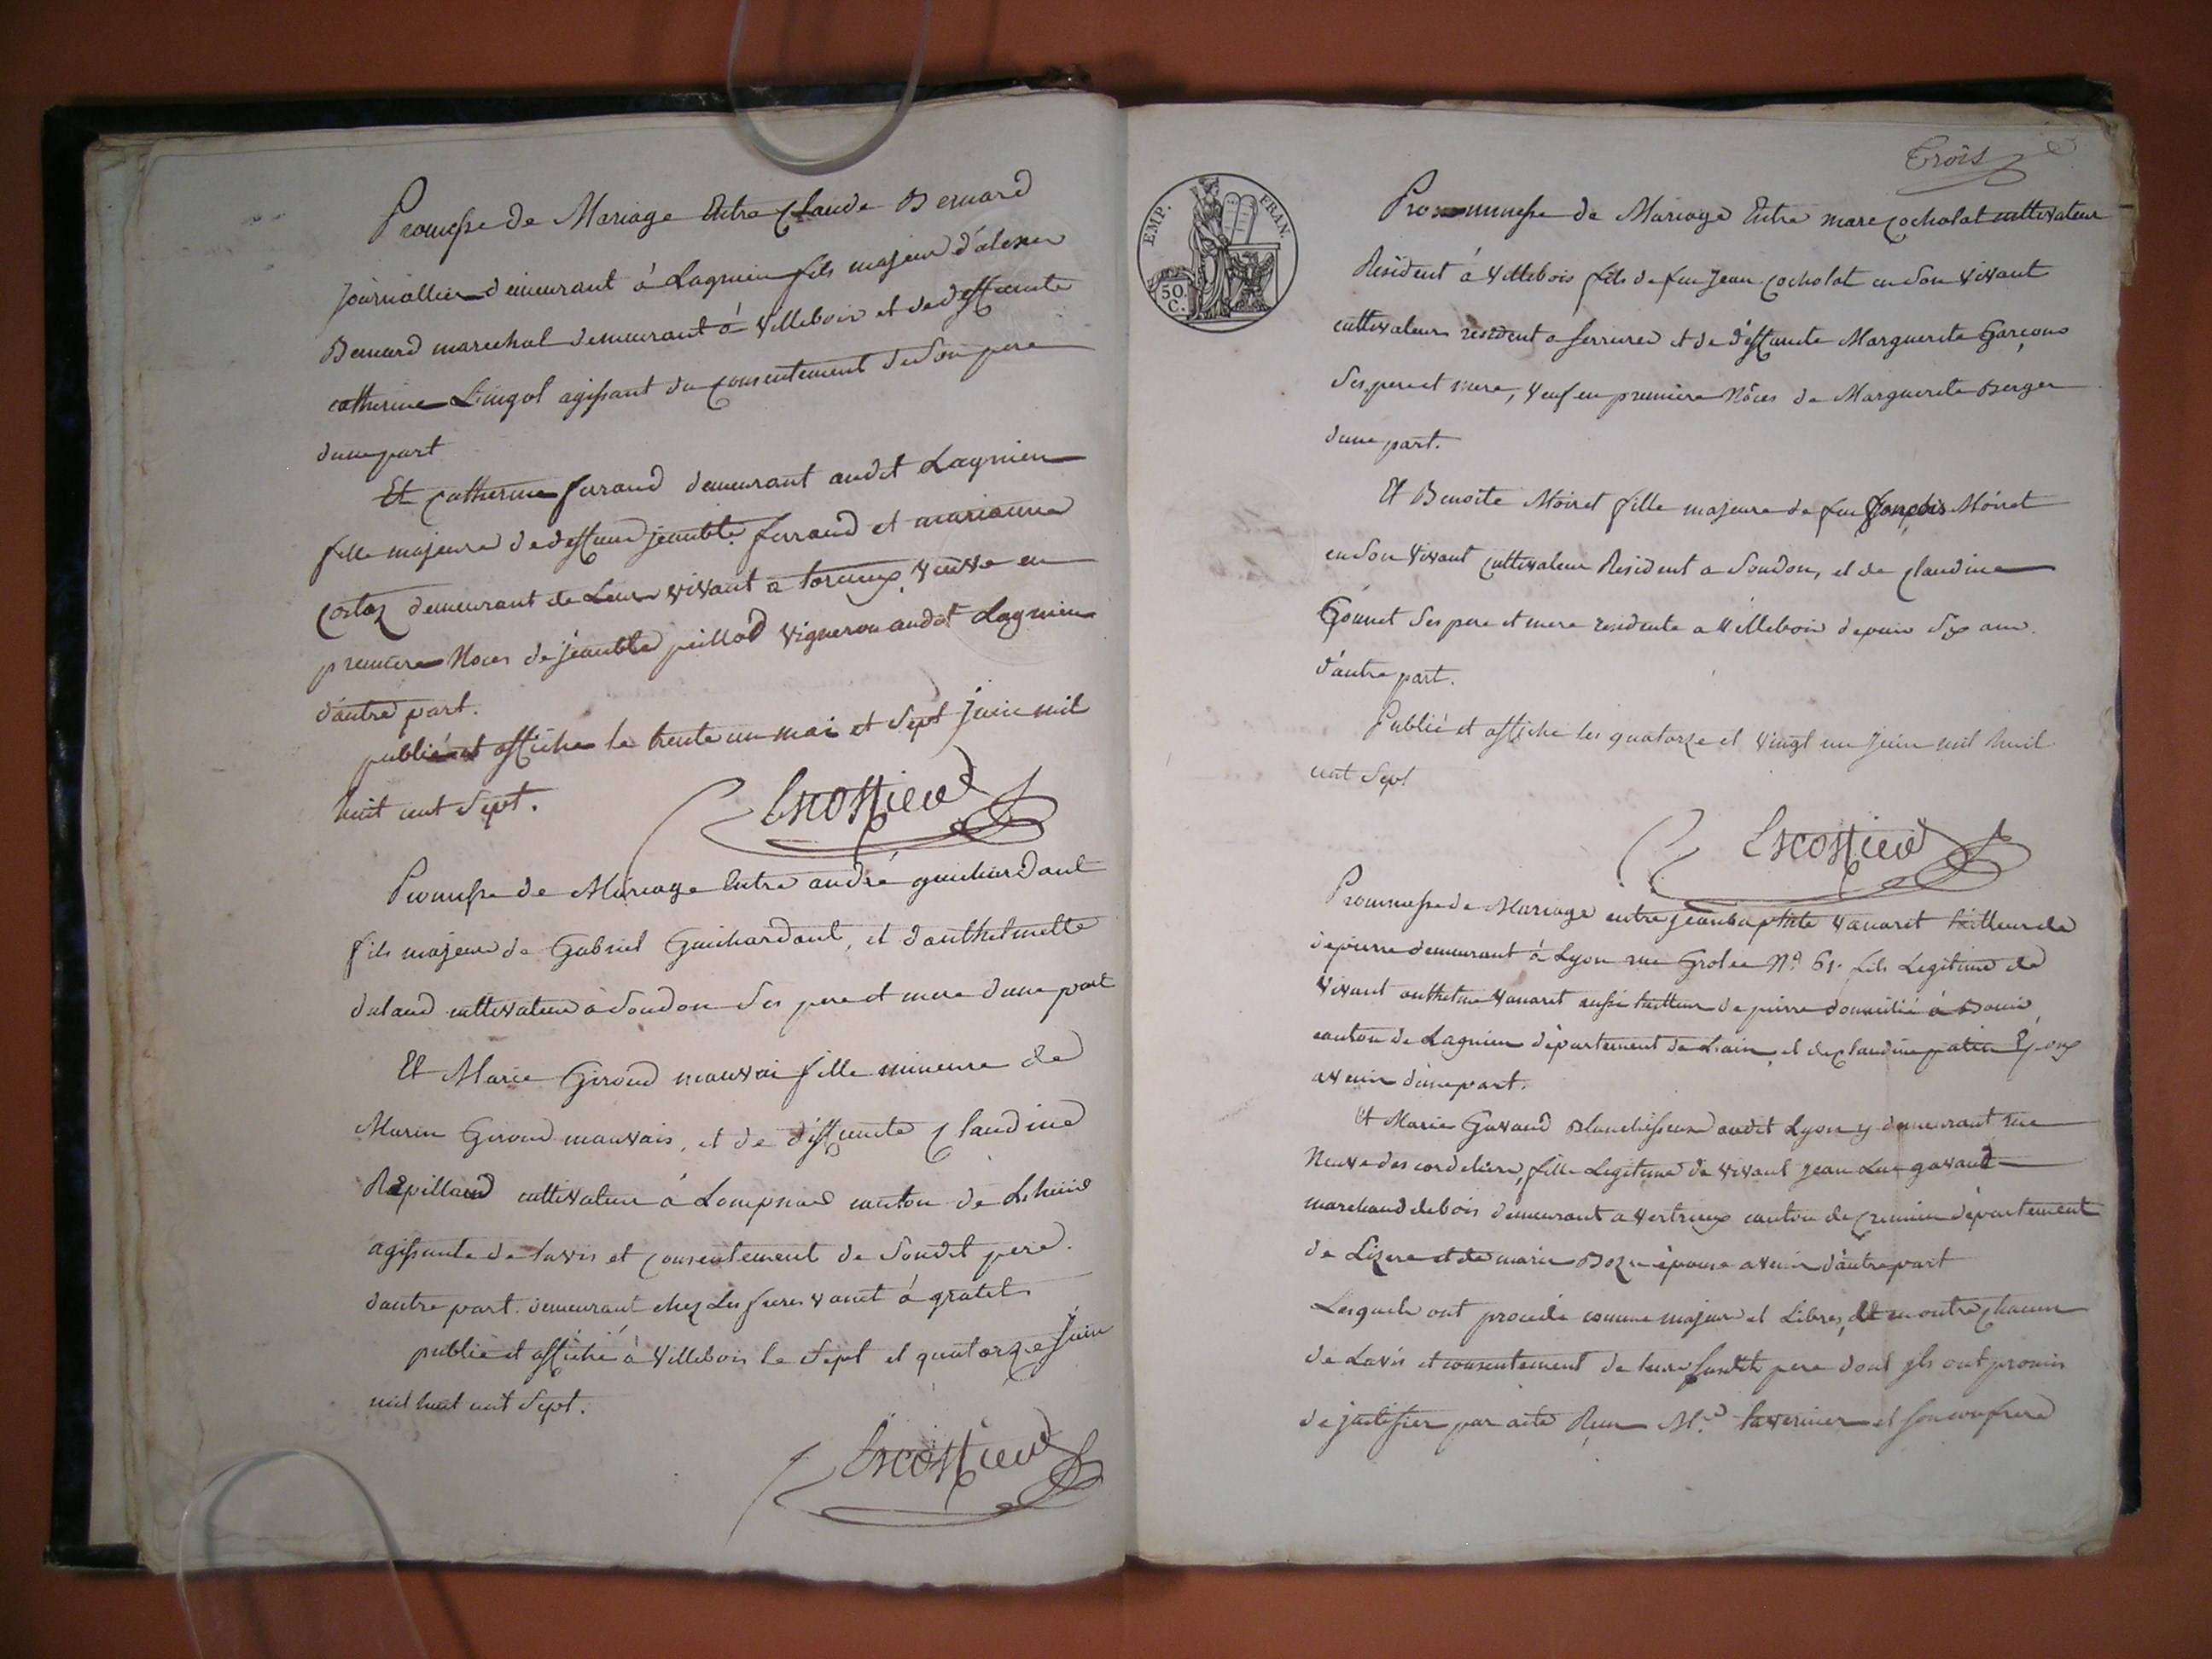 Promesse de Mariage Entre Claude Bernard
journallier demeurant à Lagnieu fils majeur d'alexis
Bernard marechal demeurant à Villebois et de deffunte
catherine Lingot agissant du consentement de son pere
dune part
Et Catherine ferrand demeurant audit Lagnieu
fille majeure de deffunt jeanbte. ferrand et marianne
Cortaz demeurant de Leur vivant a torcieux, veuve en
premiere Noces de jeanbte pillod vigneron audit Lagnieu
d'autre part.
publié et affiché le trente un mai et Sept juin mil
huit cent Sept.
Escoffier
Promesse de Mariage Entre andré guichardant
fils majeur de Gabriel Guichardant, et d'anthelmette
cultivateur à Soudon Ses pere et mere dune part
Et Marie Giroud mauvai fille mineure de
Marin Giroud mauvais, et de deffunte Claudine
Repilland cultivateur à Lompnas canton de Lhuis
agissante de Lavis et consentement de Sondit pere.
dautre part. demeurant chez Les freres vanet à gratet
publié et affiché à Villebois le Sept et quatorze Juin
mil huit cent Sept.
Escoffier
Trois
EMP. FRAN.
50. C.
Prommesse de Mariage Entre marc Cocholat cultivateur
Resident à Villebois fils de feu Jean Cocholat en Son vivant
cultivateur resident a serrieres et de deffunte Marguerite Garçons
Ses pere et mere, Veuf en premiere Nôces de Marguerite Berger
dune part.
Et Benoite Moiret fille majeure de feu Moiret
en Son vivant Cultivateur Resident a Soudon, et de Claudine
Gonnet Ses pere et mere residente a Villebois depuis Six ans.
d'autre part.
Publié et affiché les quatorze et vingt un Juin mil huit
cent Sept
Escoffier
Prommesse de Mariage entre jeanbaptiste vanaret tailleur de
de pierre demeurant à Lyon rue Grolee No. 61. fils Legitime de
vivant anthelme vanaret aussi tailleur de pierre domicilié à Bouis,
canton de Lagnieu département de Lain, et de Claudine patin Epoux
avenir dune part.
Et Marie Gavand Blanchisseuse audit Lyon y demeurant rue
Neuve des cordeliers, fille Legitime de vivant Jean Luc gavand
marchand de bois demeurant a Vertrieux canton de Cremieu département
de Lizere et de marie Bozu épouse avenir d'autre part
Lesquels ont procédé comme majeur et Libres, et en outre Chacun
de Lavis et consentement de leurs susdits pere dont ils ont promis
de justifier par acte Reçu Me. taverniere et son confrere